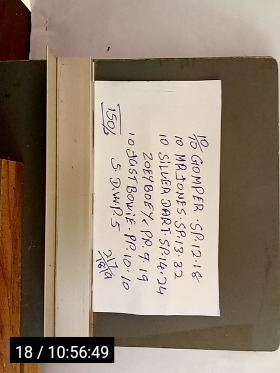 10/10 GOMPER. SP. 12. 18
10 MR JONES. SP. 13. 32
10 SILVER DART. SP. 14. 24
ZOEY BOEY. PP. 9. 19
10 JUST BOWIE. PP. 10. 10
5 D.W.P. 5
150/6
18 / 10:56:49